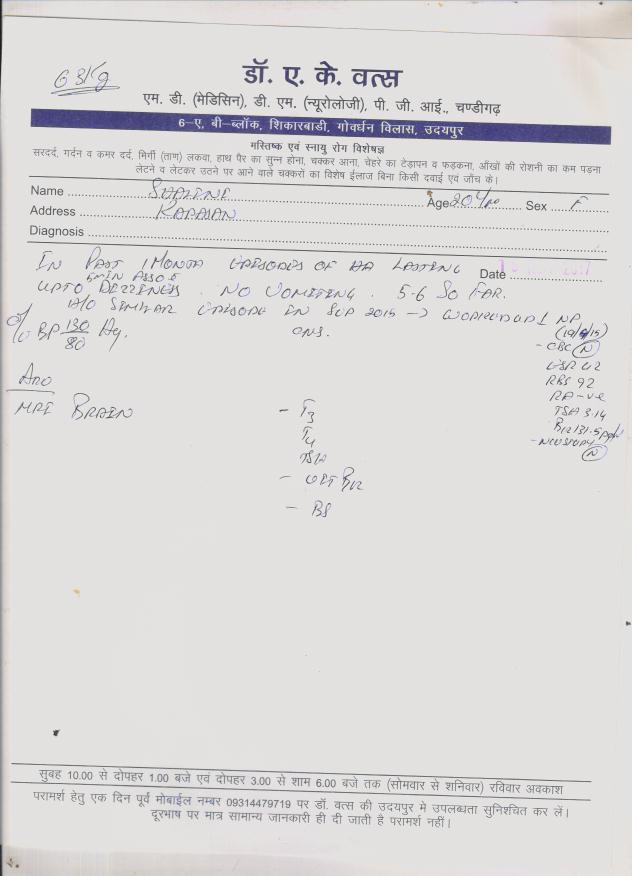 63 Kg
डॉ. ए. के. वत्स
एम. डी. (मेडिसिन), डी. एम. (न्यूरोलोजी), पी. जी. आई., चण्डीगढ़
6–ए, बी–ब्लॉक, शिकारबाडी, गोवर्धन विलास, उदयपुर
मस्तिष्क एवं स्नायु रोग विशेषज्ञ
सरदर्द, गर्दन व कमर दर्द, मिर्गी (ताण) लकवा, हाथ पैर का सुन्न होना, चक्कर आना, चेहरे का टेड़ापन व फड़कना, आँखों की रोशनी का कम पड़ना
लेटने व लेटकर उठने पर आने वाले चक्करों का विशेष ईलाज बिना किसी दवाई एवं जाँच के।
Name
Age 20 Sex F
Address
Diagnosis
IN PAST 1 MONTH EPISODES OF HA LASTING Date
5 min ASSO c
UPTO DIZZINESS. NO VOMITING. 5-6 SO FAR.
H/O SIMILAR EPISODE IN SEP 2015 →
O/E BP 130/80 Hg. CNS.
(19/9/15)
- CBC (N)
ESR 42
RBS 92
RA -ve
TSH 3.14
B12 131.5
(N)
Adv
MRI BRAIN - T3
T4
TSH
- B12
- BS
सुबह 10.00 से दोपहर 1.00 बजे एवं दोपहर 3.00 से शाम 6.00 बजे तक (सोमवार से शनिवार) रविवार अवकाश
परामर्श हेतु एक दिन पूर्व मोबाईल नम्बर 09314479719 पर डॉ. वत्स की उदयपुर मे उपलब्धता सुनिश्चित कर लें।
दूरभाष पर मात्र सामान्य जानकारी ही दी जाती है परामर्श नहीं।